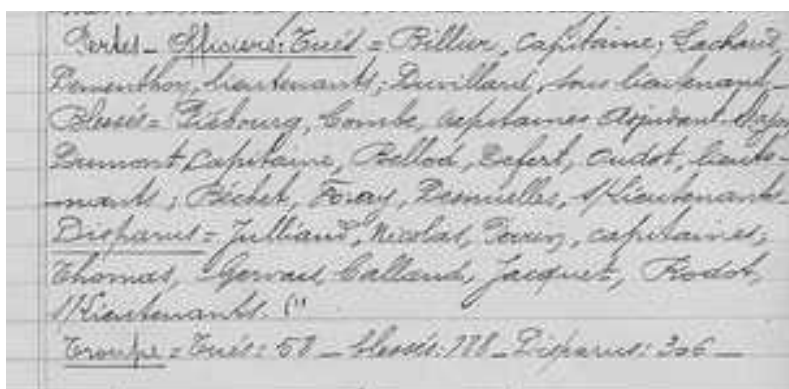 Pertes - Officiers: Tués = Billier, capitaine; Lachaud,
Dementhon, lieutenants; Duvillard, sous lieutenant -
Blessés = Piébourg, Combe, capitaines adjudant
Dumont, Capitaine, Bellod, Defert, Oudot, lieute-
-nants; Béchet, Foray, Desmielles, s/Lieutenants
Disparus = Julliand, Nicolas, capitaines;
Thomas, Gervais, Calland, Jacquet, Rodot,
s/Lieutenants. ("
Troupe = Tués: 58 - blessés: 178 - Disparus: 306 -